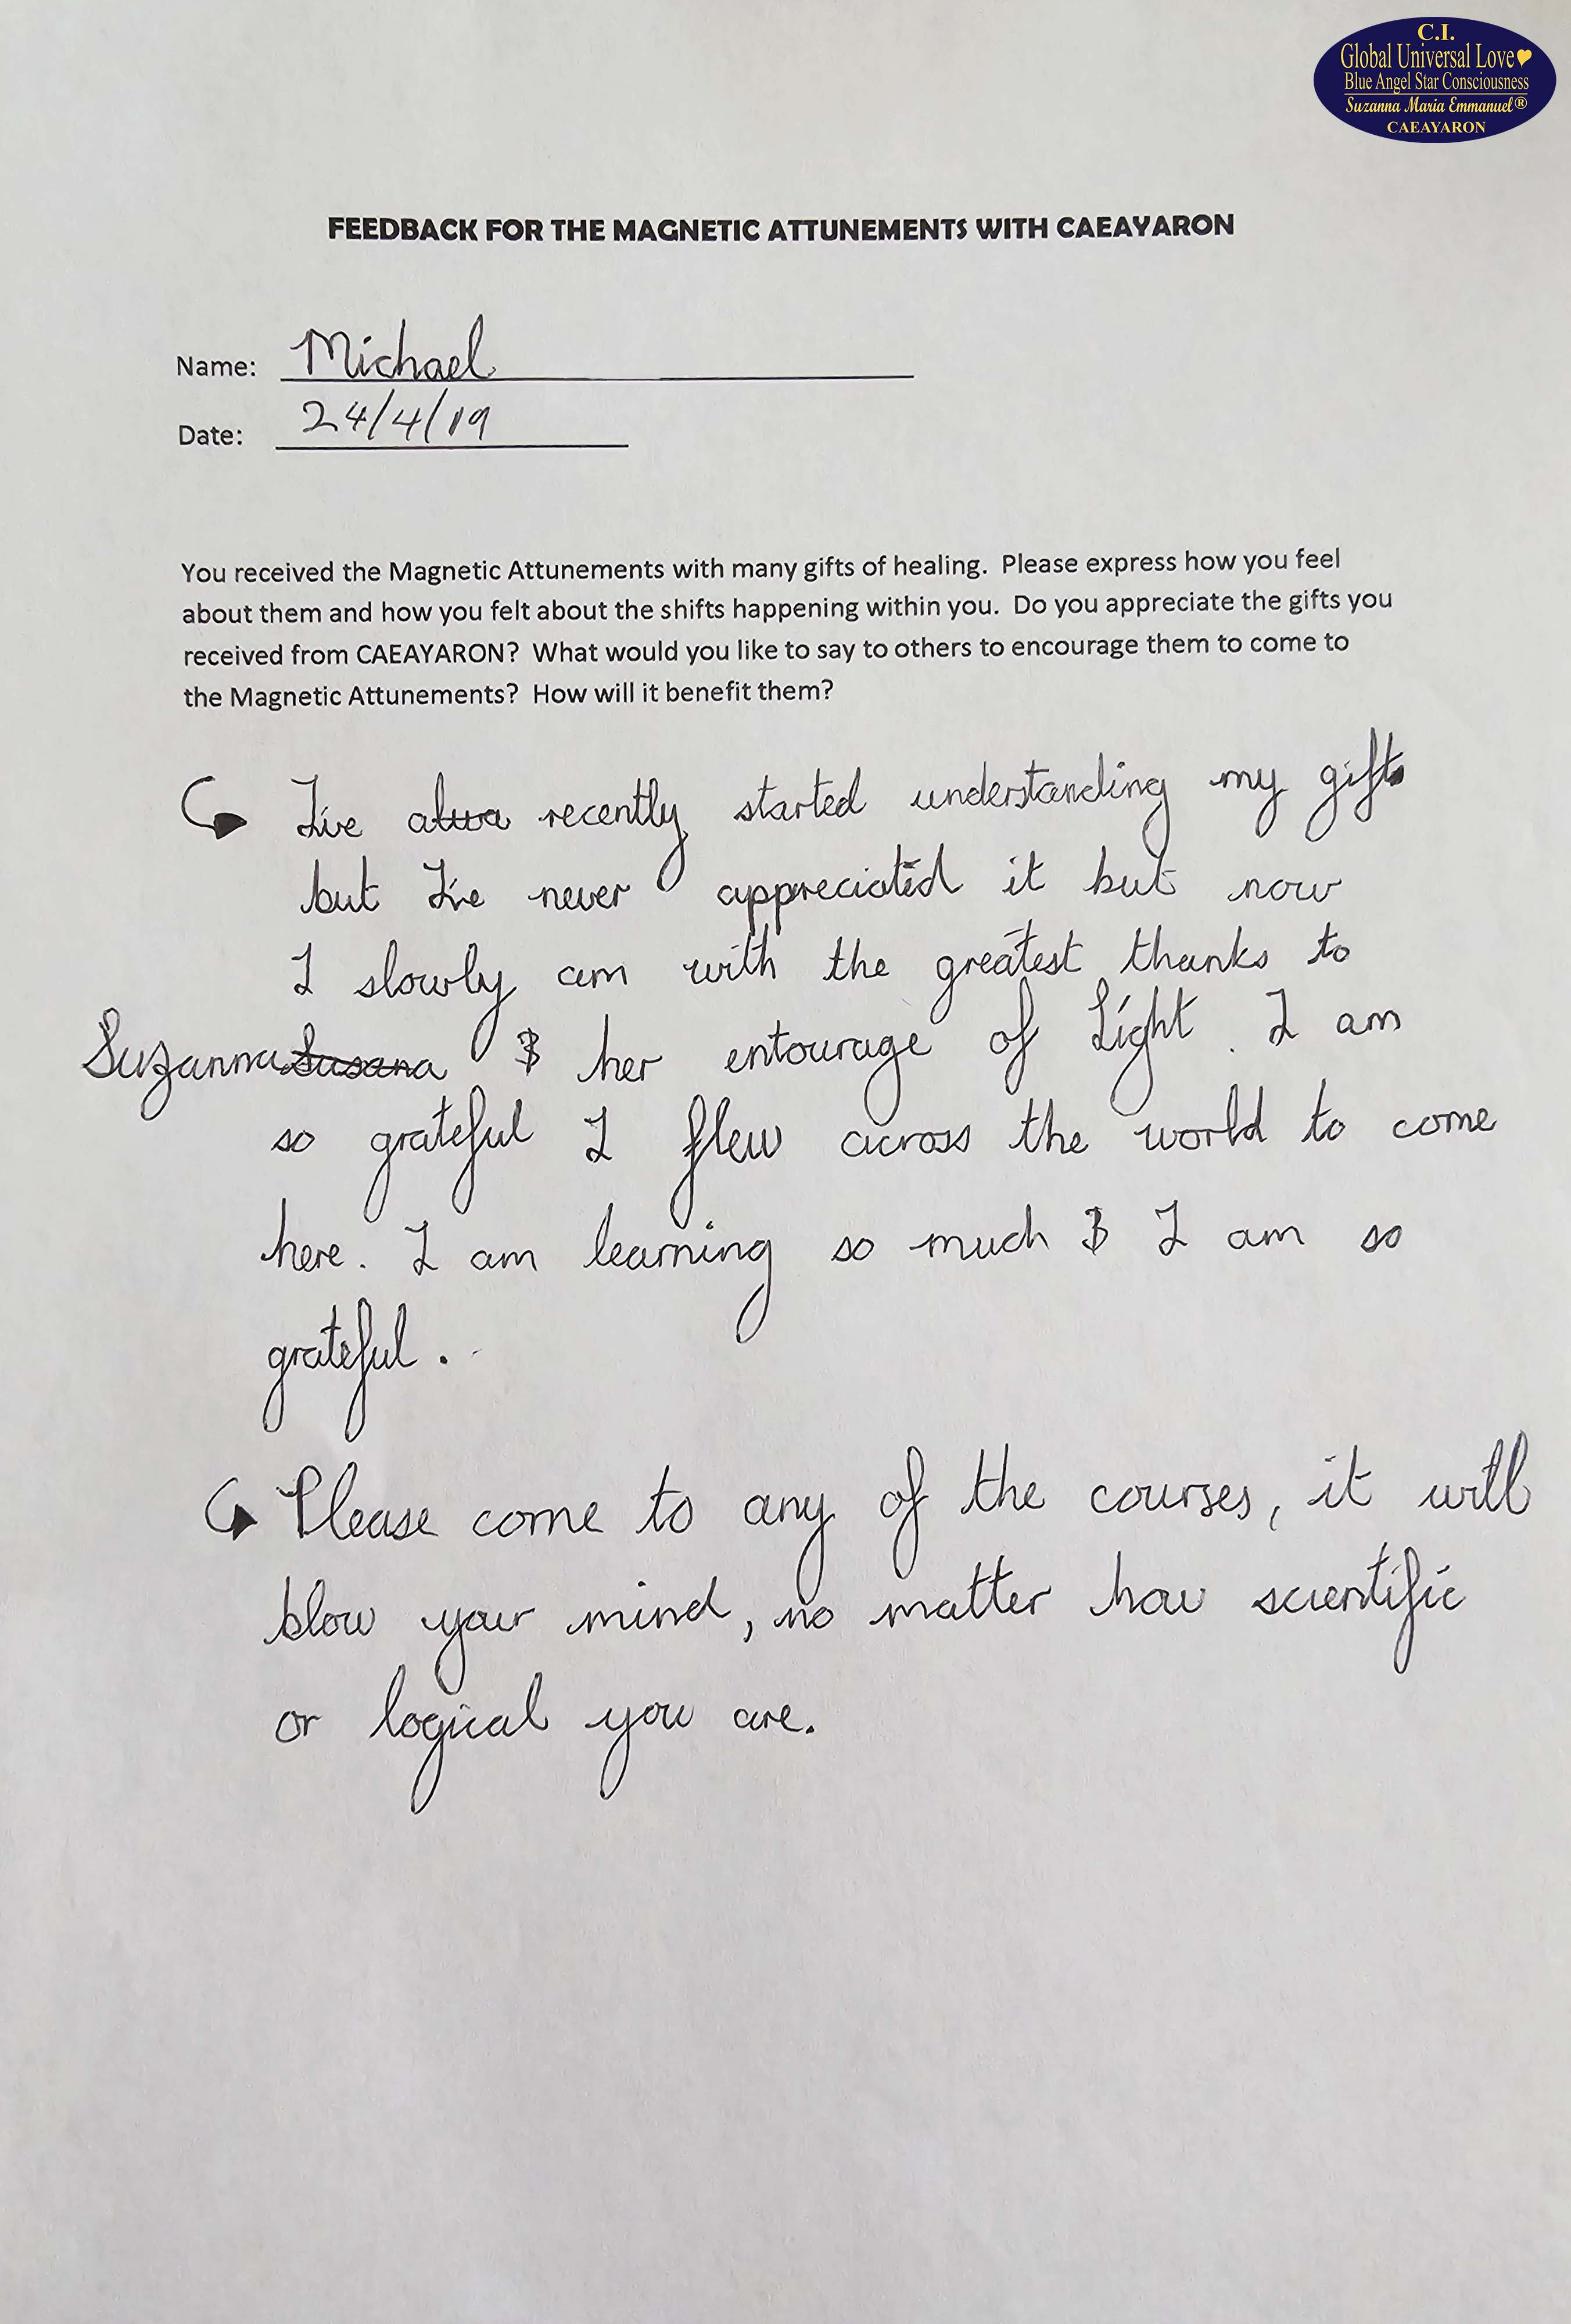 C.I.
Global Universal Love
Blue Angel Star Consciousness
Suzanna Maria Emmanuel®
CAEAYARON
FEEDBACK FOR THE MAGNETIC ATTUNEMENTS WITH CAEAYARON
Name: Michael
Date: 24/4/19
You received the Magnetic Attunements with many gifts of healing. Please express how you feel
about them and how you felt about the shifts happening within you. Do you appreciate the gifts you
received from CAEAYARON? What would you like to say to others to encourage them to come to
the Magnetic Attunements? How will it benefit them?
I've alwa recently started understanding my gift
but I've never appreciated it but now
I slowly am with the greatest thanks to
Suzanna Susana & her entourage of Light. I am
so grateful I flew across the world to come
here. I am learning so much & I am so
grateful.
Please come to any of the courses, it will
blow your mind, no matter how scientific
or logical you are.